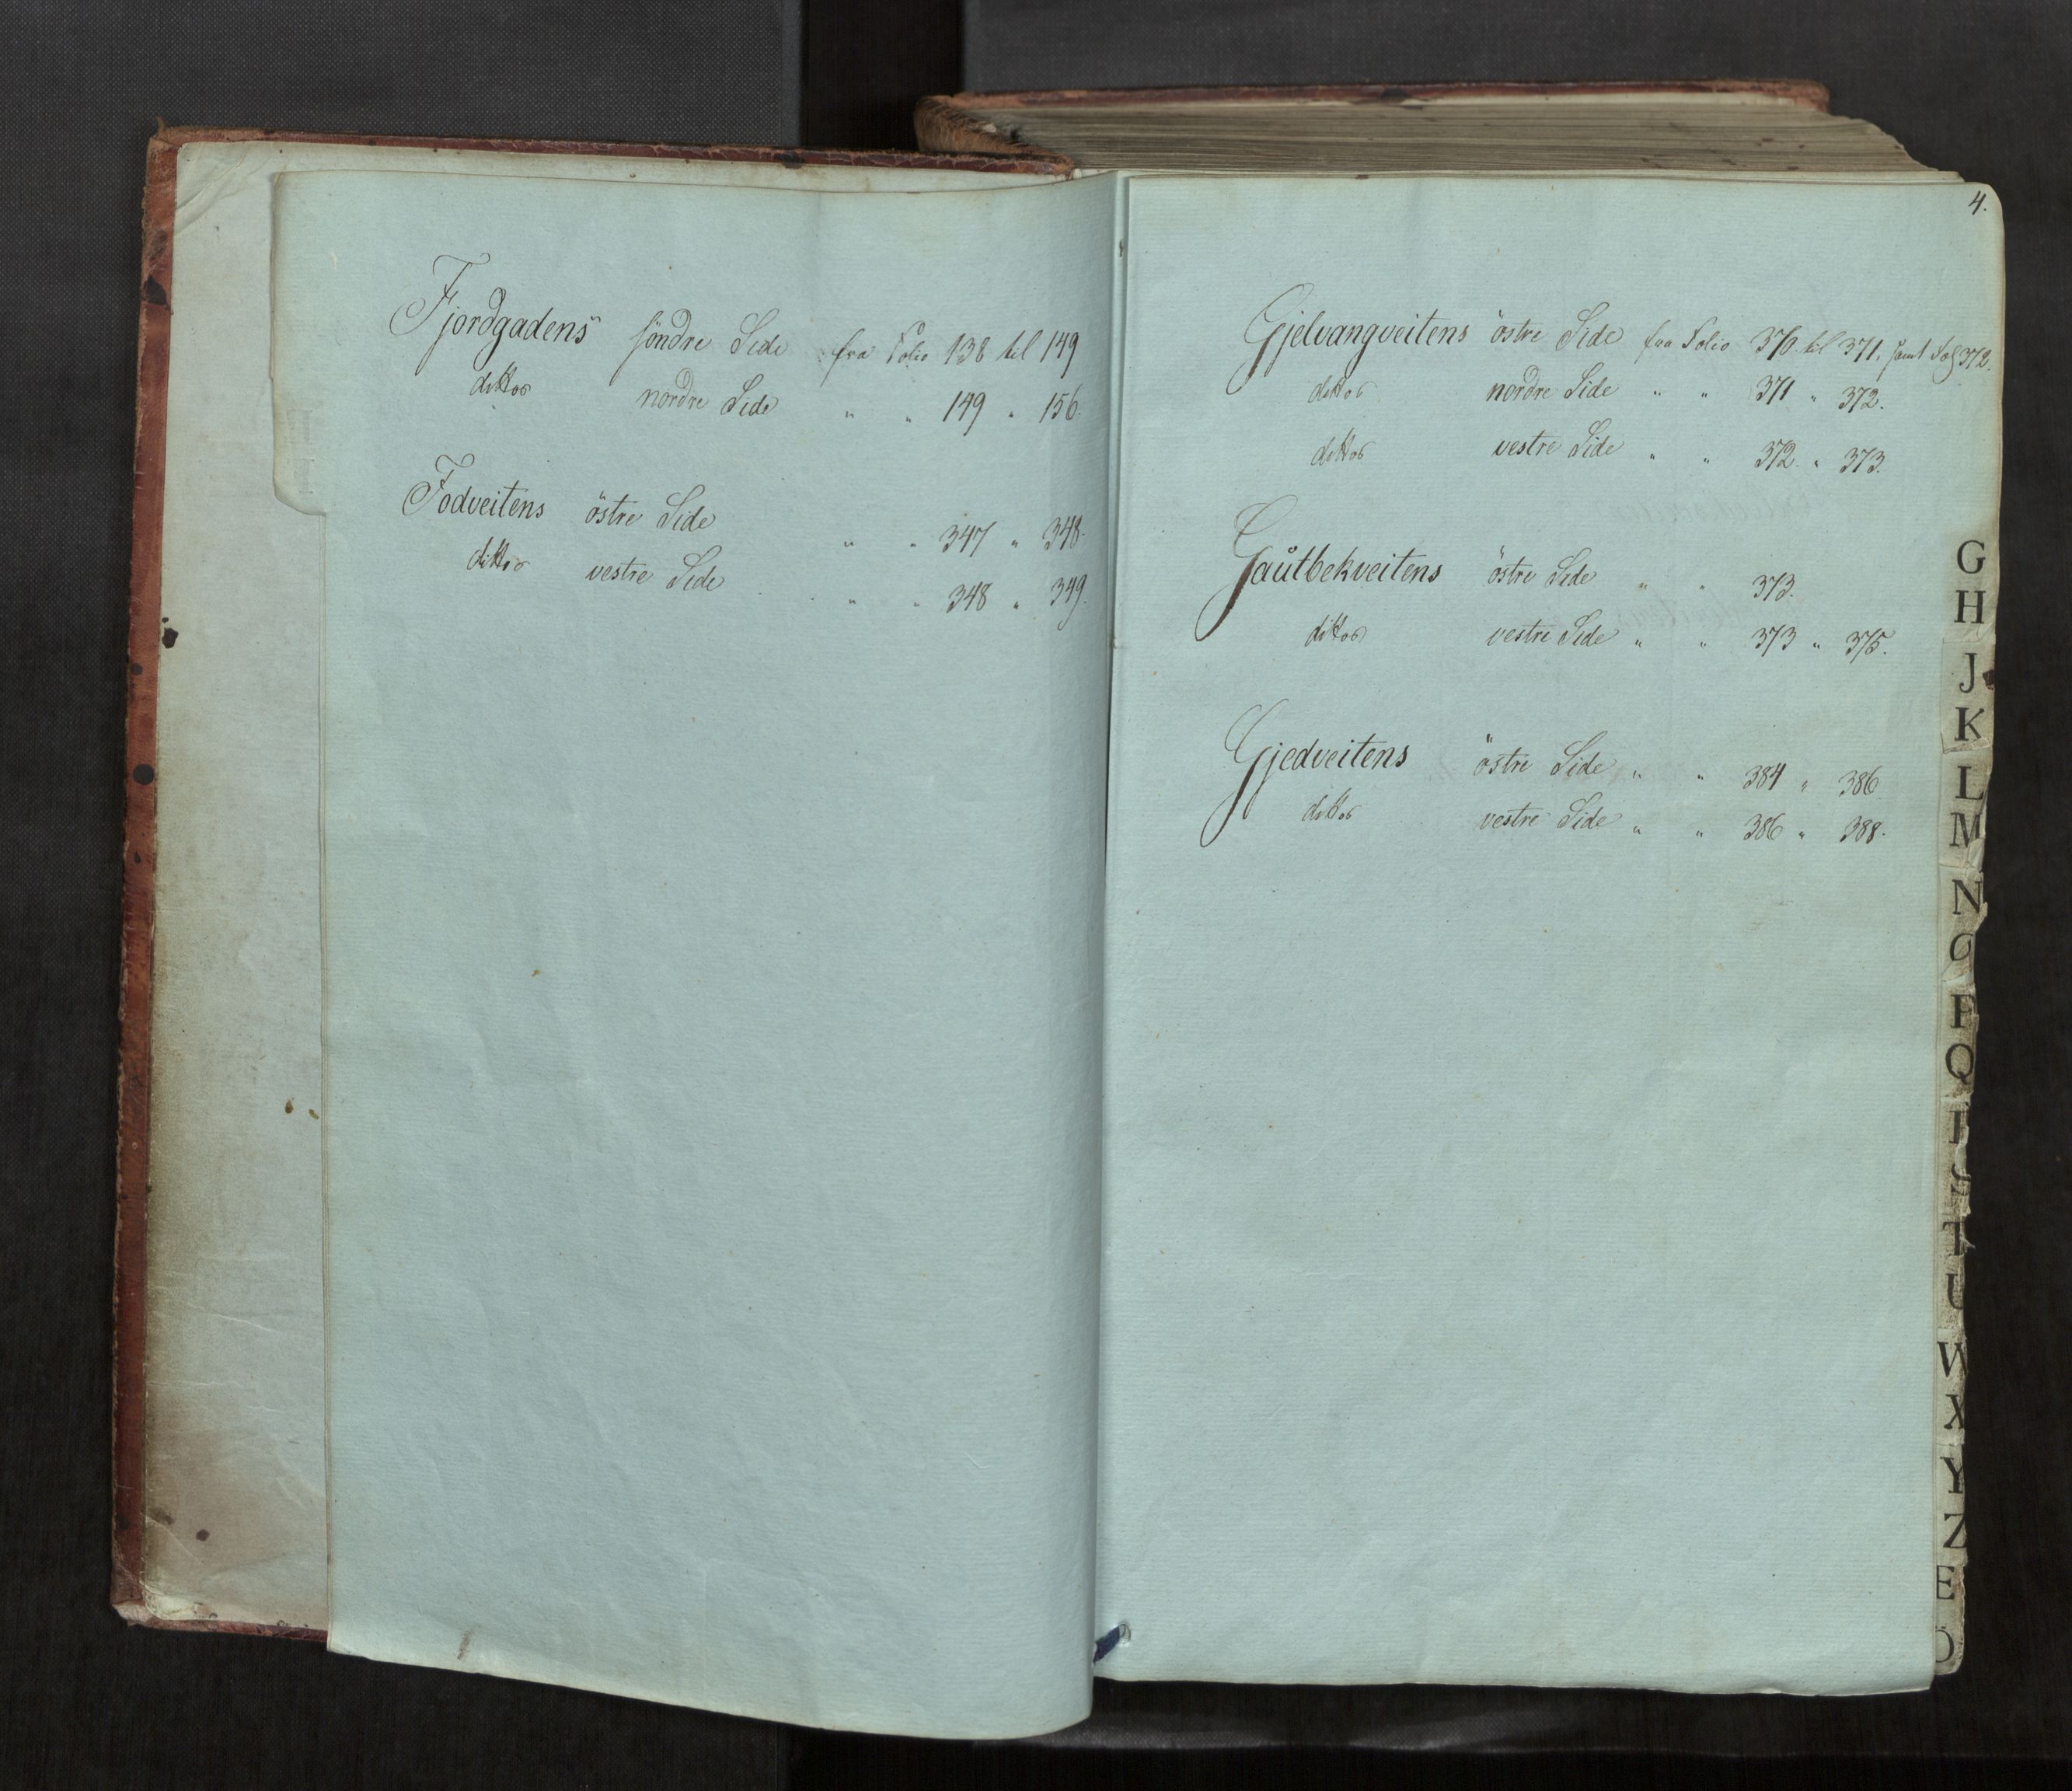 Fjordgadens søndre Side fra Folio 138 til 149
dittos nordre Side " " 149 " 156.
Fodveitens östre Side " " 347 " 348.
dittos vestre Side " " 348 " 349.
4.
Gjelvangveitens östre Side fra Folio 370 til 371, samt Fol 372.
dittos nordre Side " " 371 " 372.
dittos vestre Side " " 372. " 373.
Gautbekveitens östre Side " " 373.
dittos vestre Side " " 373 " 375.
Gjedveitens östre Side " " 384 " 386
dittos vestre Side " " 386 " 388.
G
H
J
K
L
M
N
O
P
Q
T
U
W
X
Y
Z